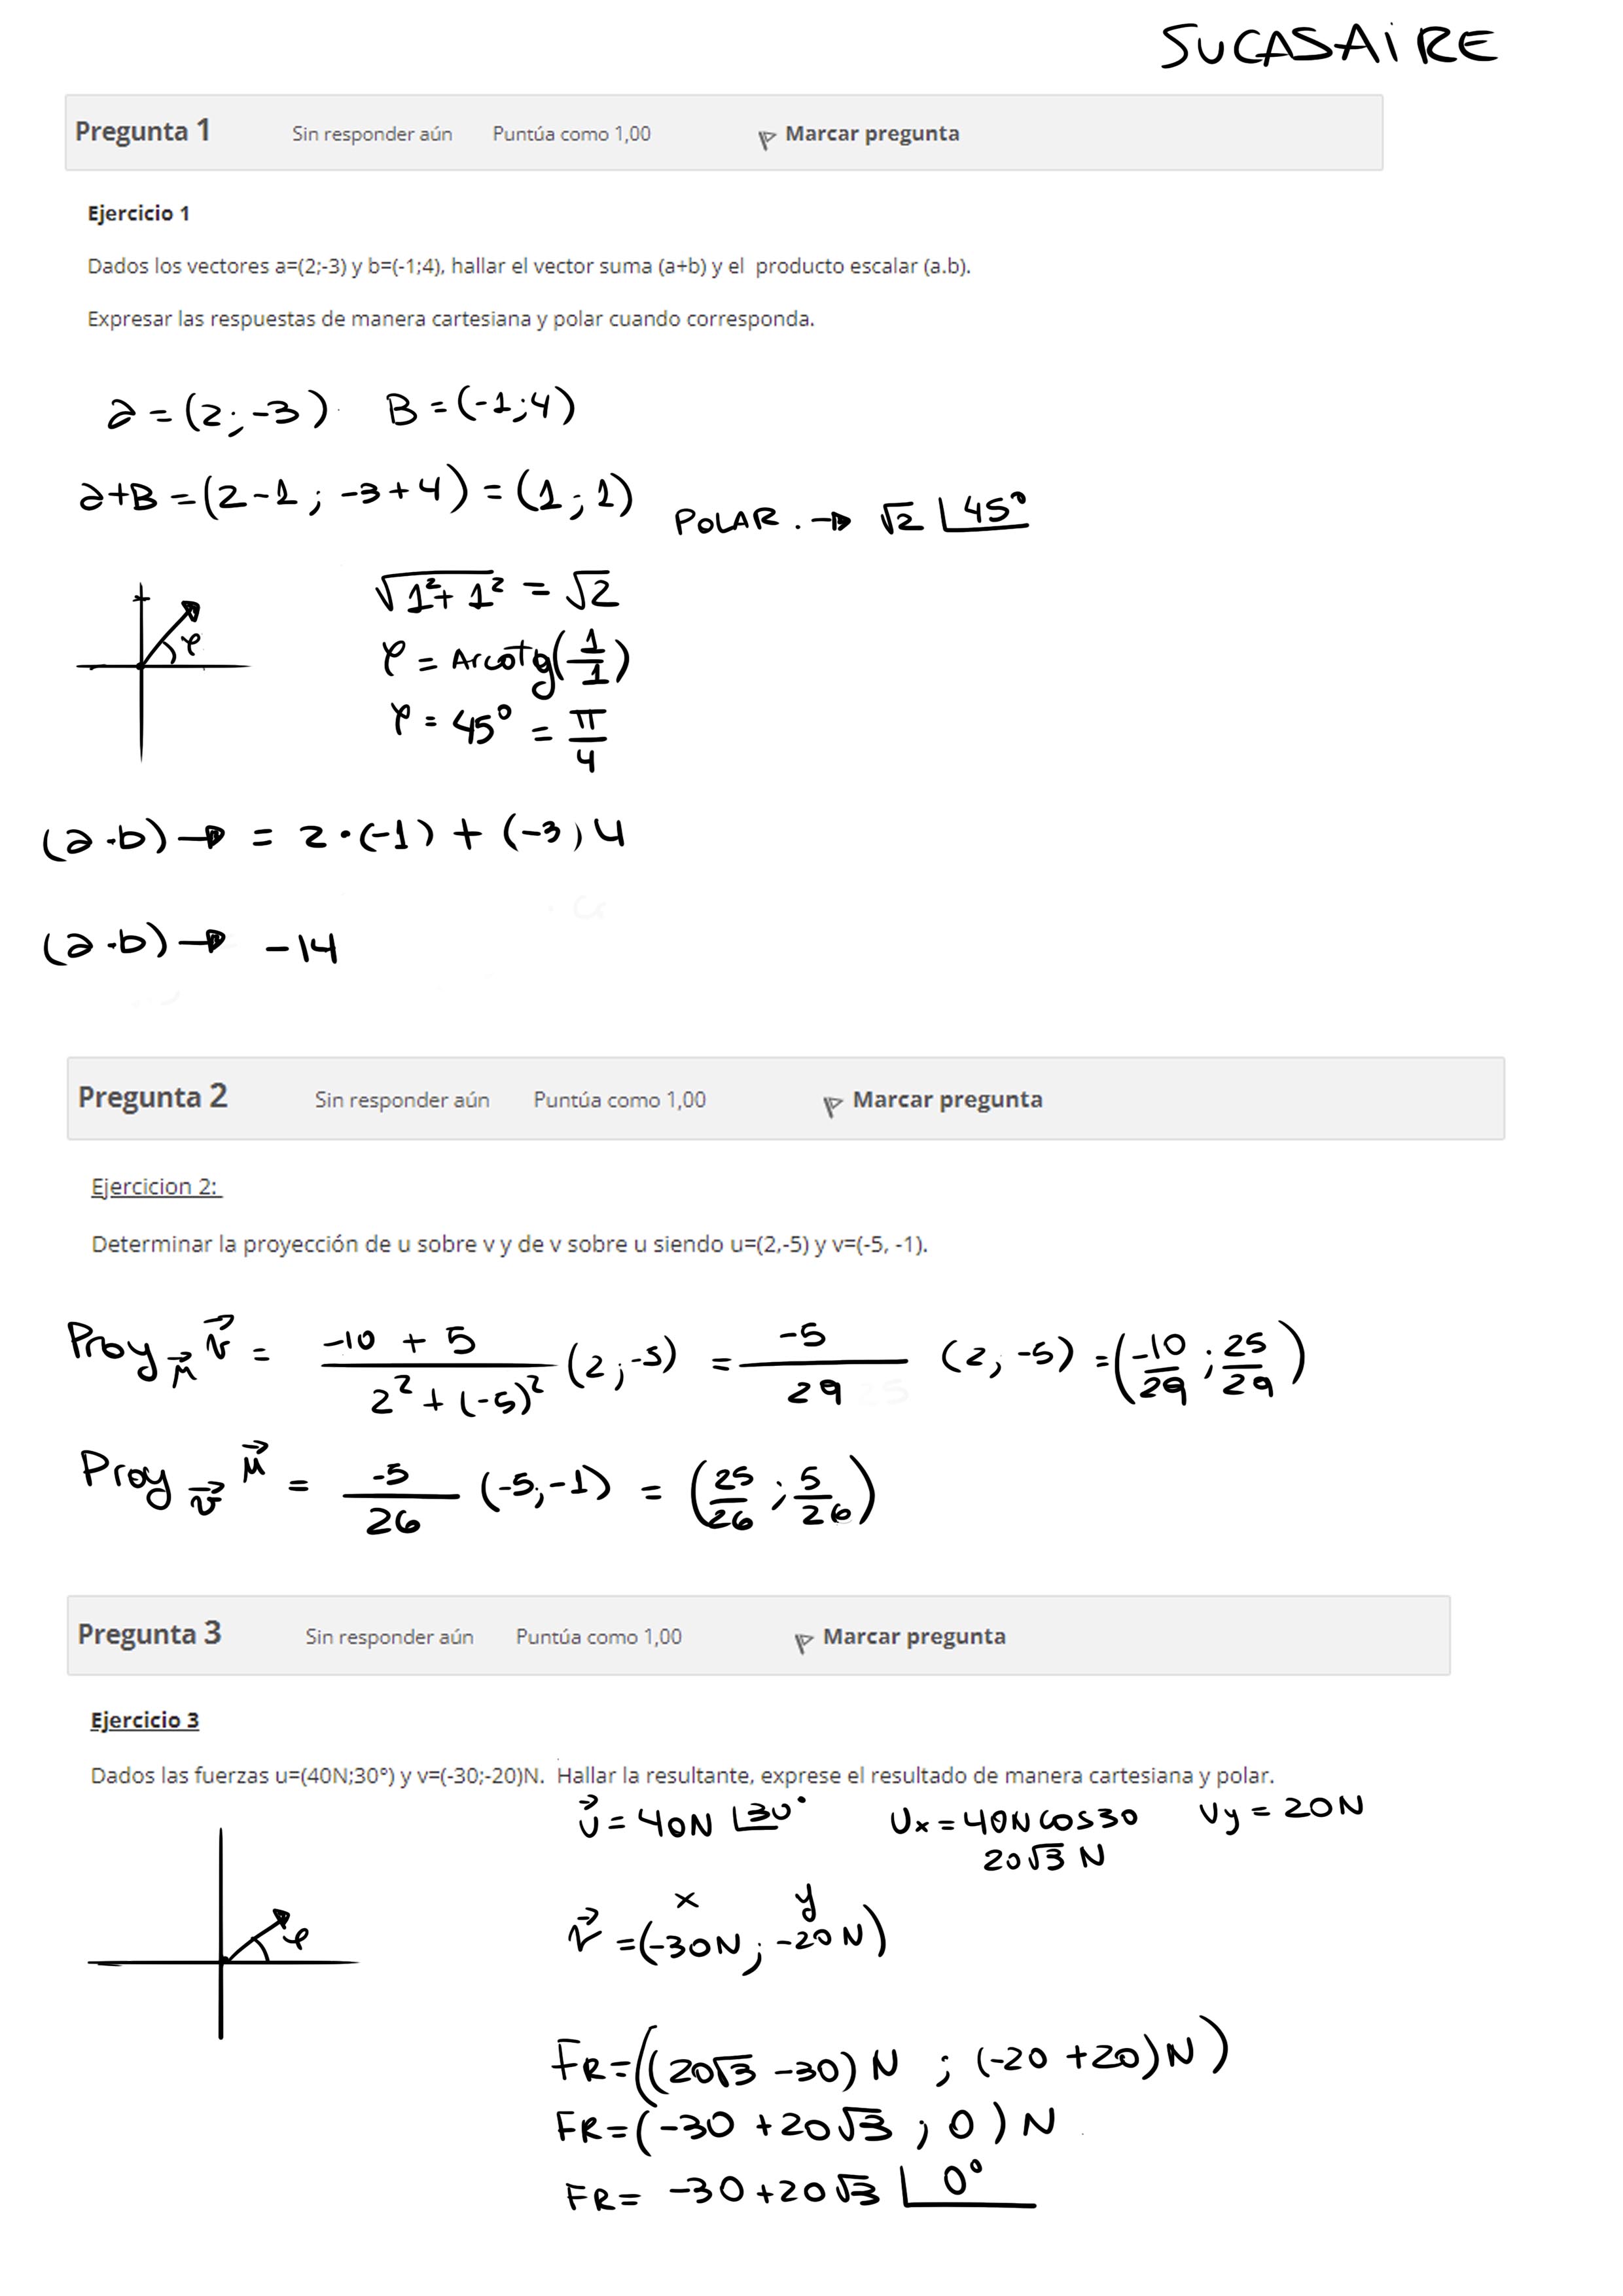 SUCASAiRE
Pregunta 1 Sin responder aún Puntúa como 1,00 Marcar pregunta
Ejercicio 1
Dados los vectores a=(2;-3) y b=(-1;4), hallar el vector suma (a+b) y el  producto escalar (a.b).
Expresar las respuestas de manera cartesiana y polar cuando corresponda.
a = (2; -3) B = (-1;4)
a+B = (2-1 ; -3+4) = (1 ; 1) POLAR . → √2 ∟45°
√1²+1² = √2
φ
φ = Arcotg(1/1)
φ = 45° = π/4
(a·b) → = 2·(-1) + (-3)4
(a·b) → -14
Pregunta 2 Sin responder aún Puntúa como 1,00 Marcar pregunta
Ejercicion 2:
Determinar la proyección de u sobre v y de v sobre u siendo u=(2,-5) y v=(-5, -1).
Proy μ⃗ v⃗ = (-10 + 5)/(2² + (-5)²) (2 ; -5) = -5/29 (2, -5) = (-10/29 ; 25/29)
Proy v⃗ μ⃗ = -5/26 (-5,-1) = (25/26 ; 5/26)
Pregunta 3 Sin responder aún Puntúa como 1,00 Marcar pregunta
Ejercicio 3
Dados las fuerzas u=(40N;30°) y v=(-30;-20)N.  Hallar la resultante, exprese el resultado de manera cartesiana y polar.
u⃗ = 40N ∟30° Ux = 40N cos30 Uy = 20N
20√3 N
x y
v⃗ = (-30N ; -20N)
φ
FR = ((20√3 -30) N ; (-20 +20)N)
FR = (-30 +20√3 ; 0) N
FR = -30 +20√3 ∟0°